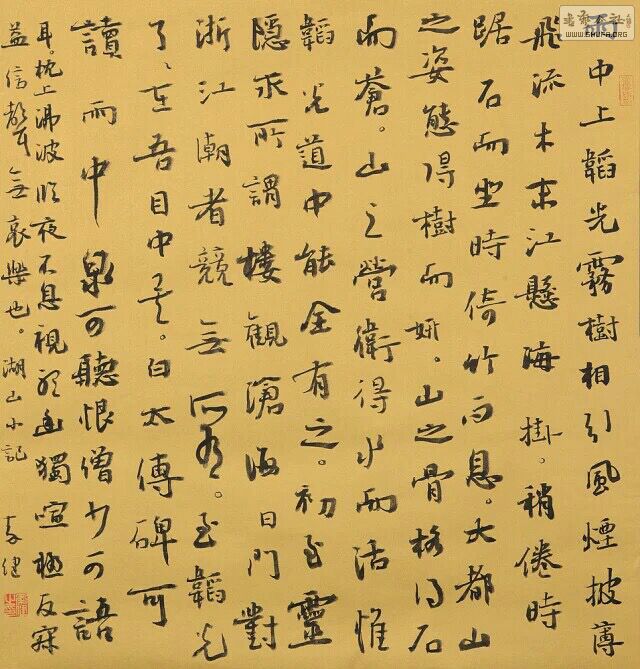 雨中上韜光霧樹相引風煙披薄
飛流木末江懸海掛。稍倦時
踞石而坐時倚竹而息。大都山
之姿態得樹而妍。山之骨格得石
而蒼。山之營衛得水而活惟
韜光道中能全有之。初至靈
隱求所謂樓觀滄海日門對
浙江潮者競無所有。至韜光
了了在吾目中矣。白太傅碑可
讀雨中泉可聽恨僧少可語
耳。枕上沸波夜不息視聽幽獨喧極反寂
益信聲無哀樂也。湖山小記
WWW.SHUFA.ORG